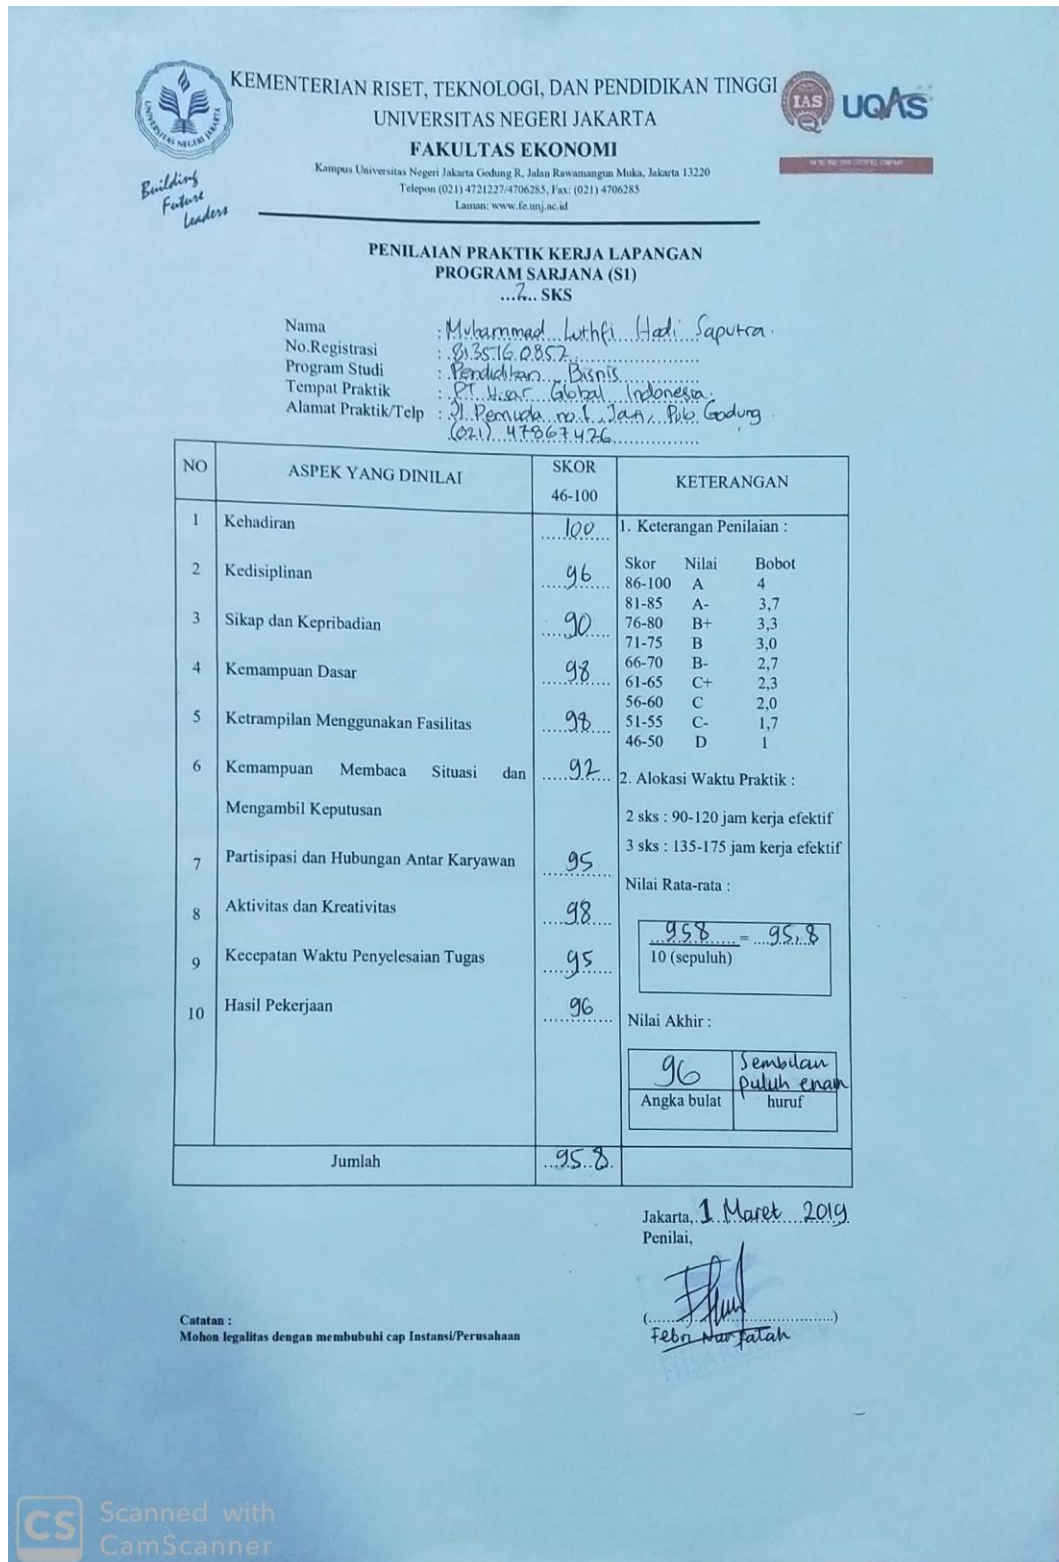 KEMENTERIAN RISET, TEKNOLOGI, DAN PENDIDIKAN TINGGI
UNIVERSITAS NEGERI JAKARTA
FAKULTAS EKONOMI
Kampus Universitas Negeri Jakarta Gedung R, Jalan Rawamangun Muka, Jakarta 13220
Telepon (021) 4721227/4706285, Fax: (021) 4706285
Laman: www.fe.unj.ac.id
UNIVERSITAS NEGERI JAKARTA
Building
Future
Leaders
IAS
UQAS
PENILAIAN PRAKTIK KERJA LAPANGAN
PROGRAM SARJANA (S1)
...2... SKS
Nama : Muhammad Luthfi Hadi Saputra
No.Registrasi : 8135160852
Program Studi : Pendidikan Bisnis
Tempat Praktik : PT Hisar Global Indonesia
Alamat Praktik/Telp : Jl. Pemuda no.1, Jati, Pulo Gadung
(021) 47867426
NO ASPEK YANG DINILAI SKOR 46-100 KETERANGAN
1 Kehadiran 100
2 Kedisiplinan 96
3 Sikap dan Kepribadian 90
4 Kemampuan Dasar 98
5 Ketrampilan Menggunakan Fasilitas 98
6 Kemampuan Membaca Situasi dan 92
Mengambil Keputusan
7 Partisipasi dan Hubungan Antar Karyawan 95
8 Aktivitas dan Kreativitas 98
9 Kecepatan Waktu Penyelesaian Tugas 95
10 Hasil Pekerjaan 96
1. Keterangan Penilaian :
Skor Nilai Bobot
86-100 A 4
81-85 A- 3,7
76-80 B+ 3,3
71-75 B 3,0
66-70 B- 2,7
61-65 C+ 2,3
56-60 C 2,0
51-55 C- 1,7
46-50 D 1
2. Alokasi Waktu Praktik :
2 sks : 90-120 jam kerja efektif
3 sks : 135-175 jam kerja efektif
Nilai Rata-rata :
958 = 95,8
10 (sepuluh)
Nilai Akhir :
96 Sembilan
puluh enam
Angka bulat huruf
Jumlah 958
Jakarta, 1 Maret 2019
Penilai,
(..............................)
Febri Nur Fatah
Catatan :
Mohon legalitas dengan membubuhi cap Instansi/Perusahaan
CS Scanned with
CamScanner